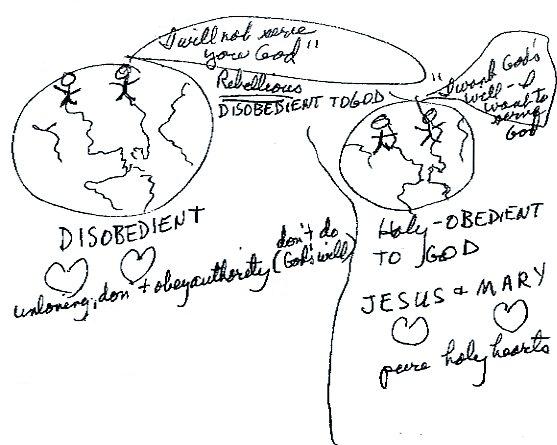 "I will not serve
you God"
Rebellious
DISOBEDIENT TO GOD
DISOBEDIENT
unloving, don't obey authority (don't do
God's will)
"I want God's
will - I
want to
serve
God
Holy-OBEDIENT
TO GOD
JESUS & MARY
pure holy hearts